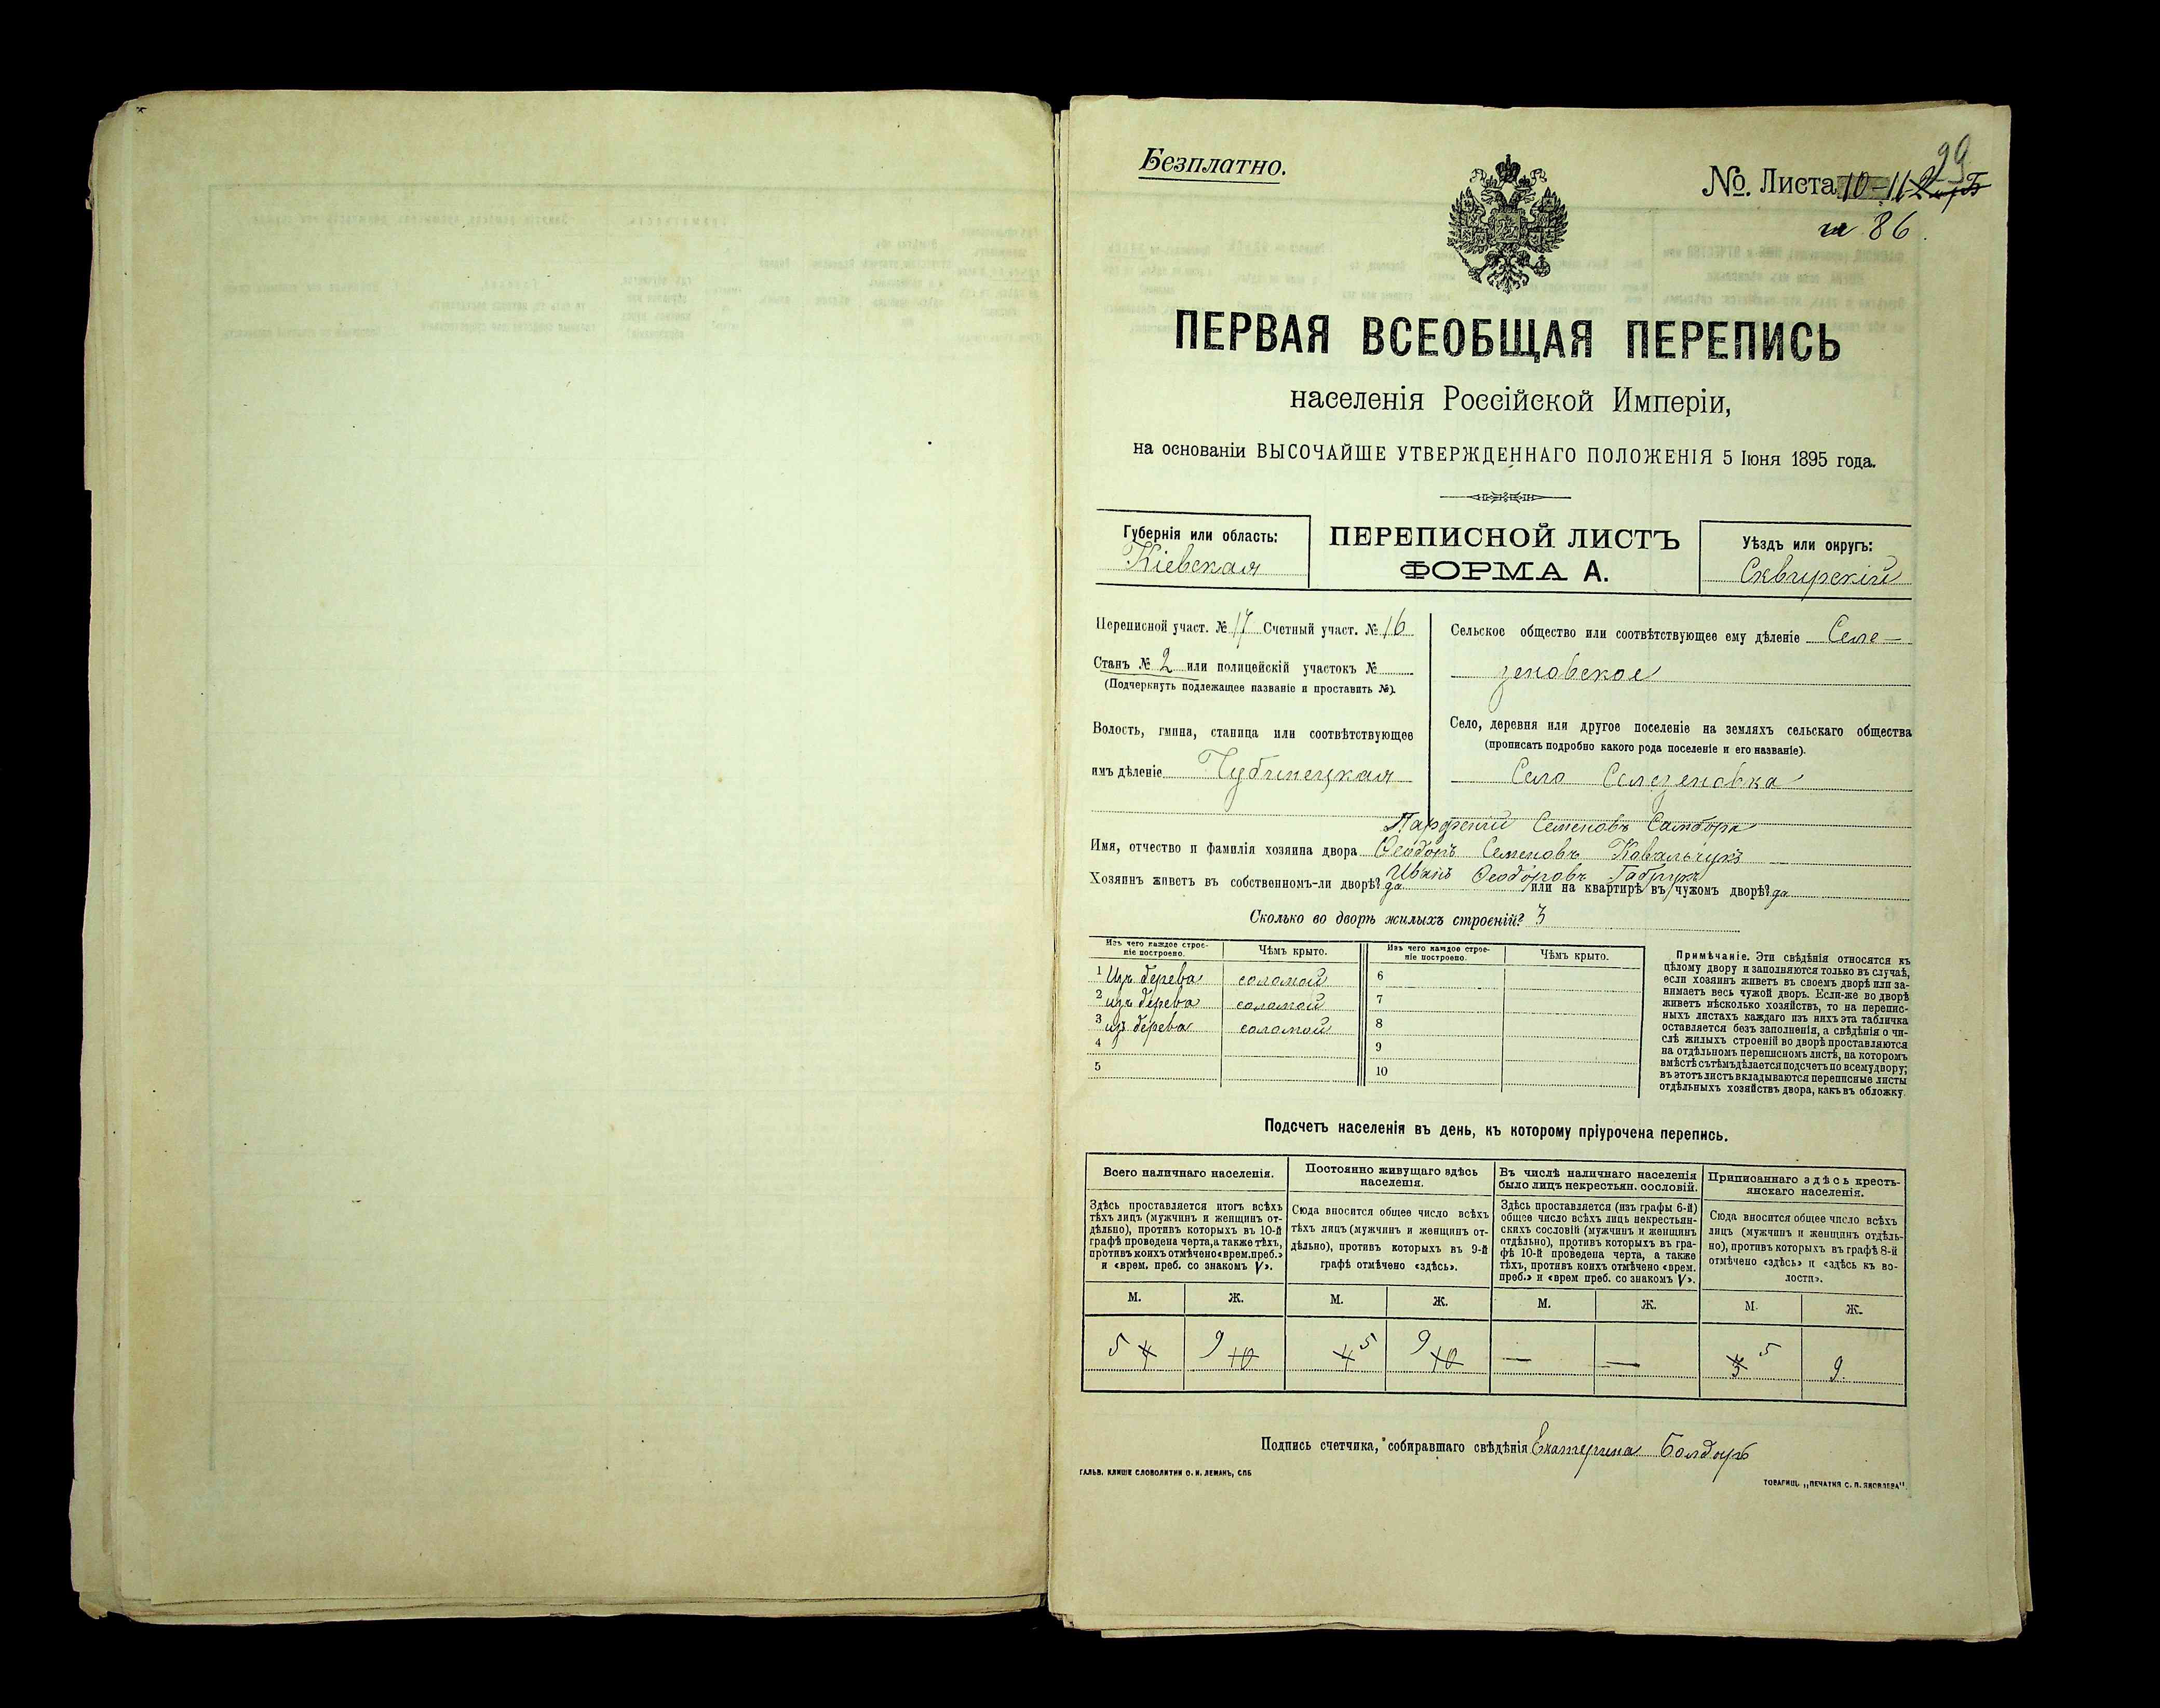 99
Безплатно.
№ Листа 10-11
и 86
ПЕРВАЯ ВСЕОБЩАЯ ПЕРЕПИСЬ
населенія Россійской Имперіи,
на основаніи ВЫСОЧАЙШЕ УТВЕРЖДЕННАГО ПОЛОЖЕНІЯ 5 Іюня 1895 года.
Губернія или область:
Кіевская
ПЕРЕПИСНОЙ ЛИСТЪ
ФОРМА А.
Уѣздъ или округъ:
Сквирскій
Переписной участ. № 17 Счетный участ. № 16
Станъ № 2 или полицейскій участокъ №
(Подчеркнуть подлежащее названіе и проставить №).
Волость, гмина, станица или соотвѣтствующее
имъ дѣленіе Чубинецкая
Сельское общество или соотвѣтствующее ему дѣленіе Селе-
зеновское
Село, деревня или другое поселеніе на земляхъ сельскаго общества
(прописать подробно какого рода поселеніе и его названіе).
Село Селезеновка
Парфеній Семеновъ Самбора
Имя, отчество и фамилія хозяина двора Ѳеодоръ Семеновъ Ковальчукъ
Иванъ Ѳеодоровъ Габрукъ
Хозяинъ живетъ въ собственномъ-ли дворѣ? да или на квартирѣ въ чужомъ дворѣ? да
Сколько во дворѣ жилыхъ строеній? 3
Изъ чего каждое строе-
ніе построено.
Чѣмъ крыто.
Изъ чего каждое строе-
ніе построено.
Чѣмъ крыто.
1 Изъ дерева соломой 6
2 изъ дерева соломой 7
3 изъ дерева соломой 8
4 9
5 10
Примѣчаніе. Эти свѣдѣнія относятся къ
цѣлому двору и заполняются только въ случаѣ,
если хозяинъ живетъ въ своемъ дворѣ или за-
нимаетъ весь чужой дворъ. Если-же во дворѣ
живетъ нѣсколько хозяйствъ, то на перепис-
ныхъ листахъ каждаго изъ нихъ эта табличка
оставляется безъ заполненія, а свѣдѣнія о чи-
слѣ жилыхъ строеній во дворѣ проставляются
на отдѣльномъ переписномъ листѣ, на которомъ
вмѣстѣ съ тѣмъ дѣлается подсчетъ по всему двору;
въ этотъ листъ вкладываются переписные листы
отдѣльныхъ хозяйствъ двора, какъ въ обложку.
Подсчетъ населенія въ день, къ которому пріурочена перепись.
Всего наличнаго населенія.
Здѣсь проставляется итогъ всѣхъ
тѣхъ лицъ (мужчинъ и женщинъ от-
дѣльно), противъ которыхъ въ 10-й
графѣ проведена черта, а также тѣхъ,
противъ коихъ отмѣчено «врем. преб.»
и «врем. преб. со знакомъ V».
Постоянно живущаго здѣсь
населенія.
Сюда вносится общее число всѣхъ
тѣхъ лицъ (мужчинъ и женщинъ от-
дѣльно), противъ которыхъ въ 9-й
графѣ отмѣчено «здѣсь».
Въ числѣ наличнаго населенія
было лицъ некрестьян. сословій.
Здѣсь проставляется (изъ графы 6-й)
общее число всѣхъ лицъ некрестьян-
скихъ сословій (мужчинъ и женщинъ
отдѣльно), противъ которыхъ въ гра-
фѣ 10-й проведена черта, а также
тѣхъ, противъ коихъ отмѣчено «врем.
преб.» и «врем преб. со знакомъ V».
Приписаннаго здѣсь кресть-
янскаго населенія.
Сюда вносится общее число всѣхъ
лицъ (мужчинъ и женщинъ отдѣль-
но), противъ которыхъ въ графѣ 8-й
отмѣчено «здѣсь» и «здѣсь къ во-
лости».
М. Ж. М. Ж. М. Ж. М. Ж.
5 4 9 10 4 5 9 10 — — 3 5 9
Подпись счетчика, собиравшаго свѣдѣнія Екатерина Болдырь
ГАЛЬВ. КЛИШЕ СЛОВОЛИТНИ О. И. ЛЕМАНЪ, СПБ
ТОВАРИЩ. „ПЕЧАТНЯ С. П. ЯКОВЛЕВА".